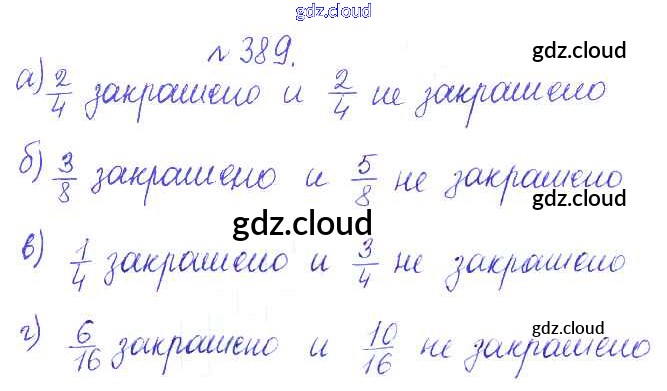 gdz.cloud
№ 389. gdz.cloud
а) 2/4 закрашено и 2/4 не закрашено
б) 3/8 закрашено и 5/8 не закрашено
gdz.cloud
gdz.cloud
в) 1/4 закрашено и 3/4 не закрашено
gdz.cloud
г) 6/16 закрашено и 10/16 не закрашено